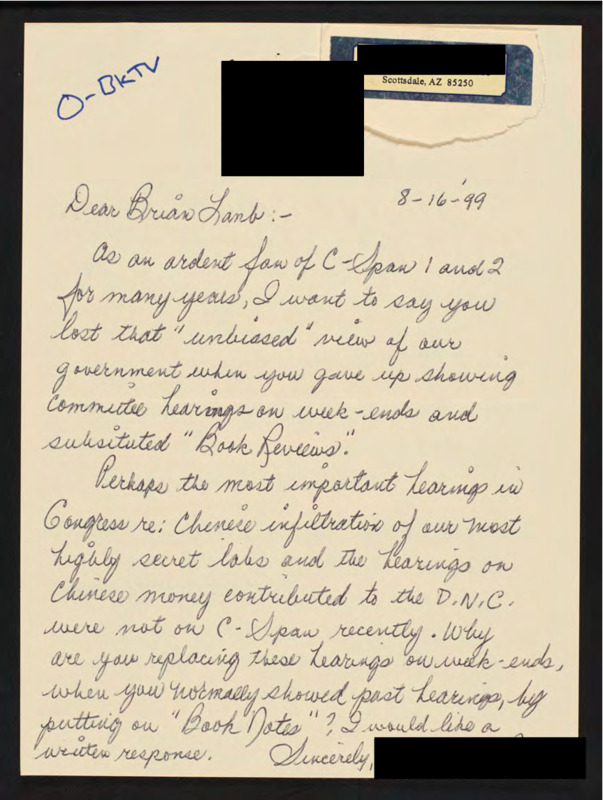 O-BKTV
Scottsdale, AZ 85250
8-16-'99
Dear Brian Lamb:-
As an ardent fan of C-Span 1 and 2
for many years, I want to say you
lost that "unbiased" view of our
government when you gave up showing
committee hearings on week-ends and
substituted "Book Reviews".
Perhaps the most important hearings in
Congress re: Chinese infiltration of our most
highly secret labs and the hearings on
Chinese money contributed to the D.N.C.
were not on C-Span recently. Why
are you replacing these hearings on week-ends,
when you normally showed past hearings, by
putting on "Book Notes"? I would like a
written response. Sincerely,